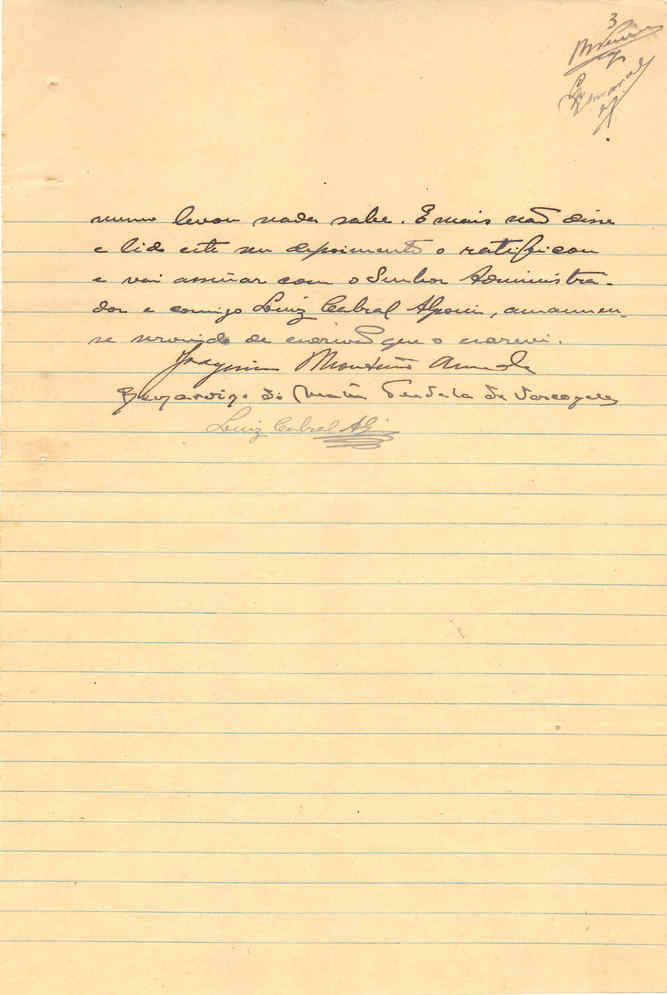 3
mesmo levou nada sabe. E mais não disse
e lido este seu depoimento o ratificou
e vai assinar com o Senhor Administra-
dor e comigo Luiz Cabral, amanuen-
se servindo de escrivão que o escrevi.
Joaquim Monteiro
de Vasconcelos
Luiz Cabral